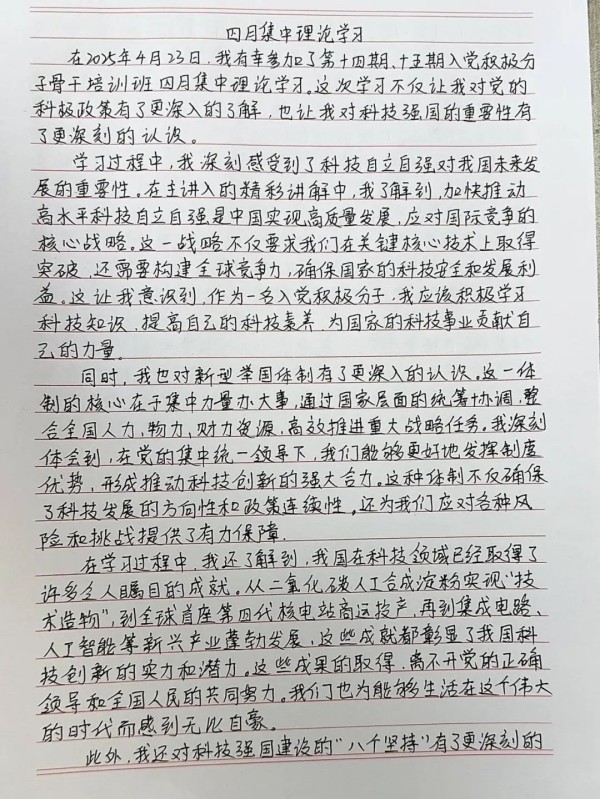 四月集中理论学习
在2025年4月23日，我有幸参加了第十四期、十五期入党积极分
子骨干培训班四月集中理论学习。这次学习不仅让我对党的
科极政策有了更深入的了解，也让我对科技强国的重要性有
了更深刻的认识。
学习过程中，我深刻感受到了科技自立自强对我国未来发
展的重要性。在主讲人的精彩讲解中，我了解到，加快推动
高水平科技自立自强是中国实现高质量发展，应对国际竞争的
核心战略。这一战略不仅要求我们在关键核心技术上取得
突破，还需要构建全球竞争力，确保国家的科技安全和发展利
益。这让我意识到，作为一名入党积极分子，我应该积极学习
科技知识，提高自己的科技素养，为国家的科技事业贡献自
己的力量。
同时，我也对新型举国体制有了更深入的认识。这一体
制的核心在于集中力量办大事，通过国家层面的统筹协调，整
合全国人力，物力，财力资源，高效推进重大战略任务。我深刻
体会到，在党的集中统一领导下，我们能够更好地发挥制度
优势，形成推动科技创新的强大合力。这种体制不仅确保
了科技发展的方向性和政策连续性。还为我们应对各种风
险和挑战提供了有力保障.
在学习过程中，我还了解到，我国在科技领域已经取得了
许多令人瞩目的成就。从二氧化碳人工合成淀粉实现“技
术造物”，到全球首座第四代核电站商运投产，再到集成电路、
人工智能等新兴产业蓬勃发展，这些成就都彰显了我国科
技创新的实力和潜力。这些成果的取得，离不开党的正确
领导和全国人民的共同努力。我们也为能够生活在这个伟大
的时代而感到无比自豪。
此外，我还对科技强国建设的“八个坚持”有了更深刻的